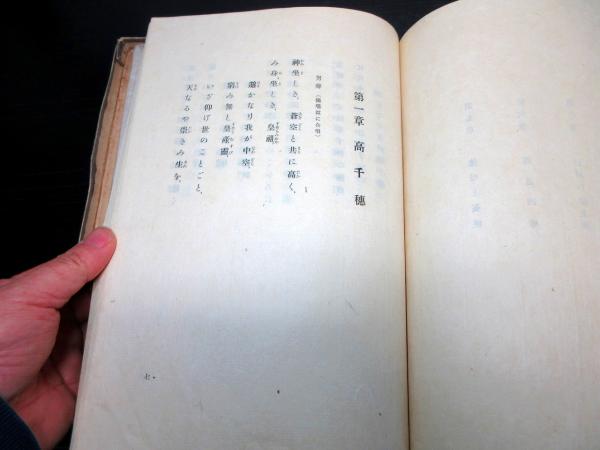 第一章 高千穂
男聲（獨唱竝に合唱）
神坐しき、蒼空と共に高く、
み身坐しき、皇祖。
遙かなり我が中空、
窮み無し皇産靈、
いざ仰げ世のことごと、
天なるや崇きみ生を。
七